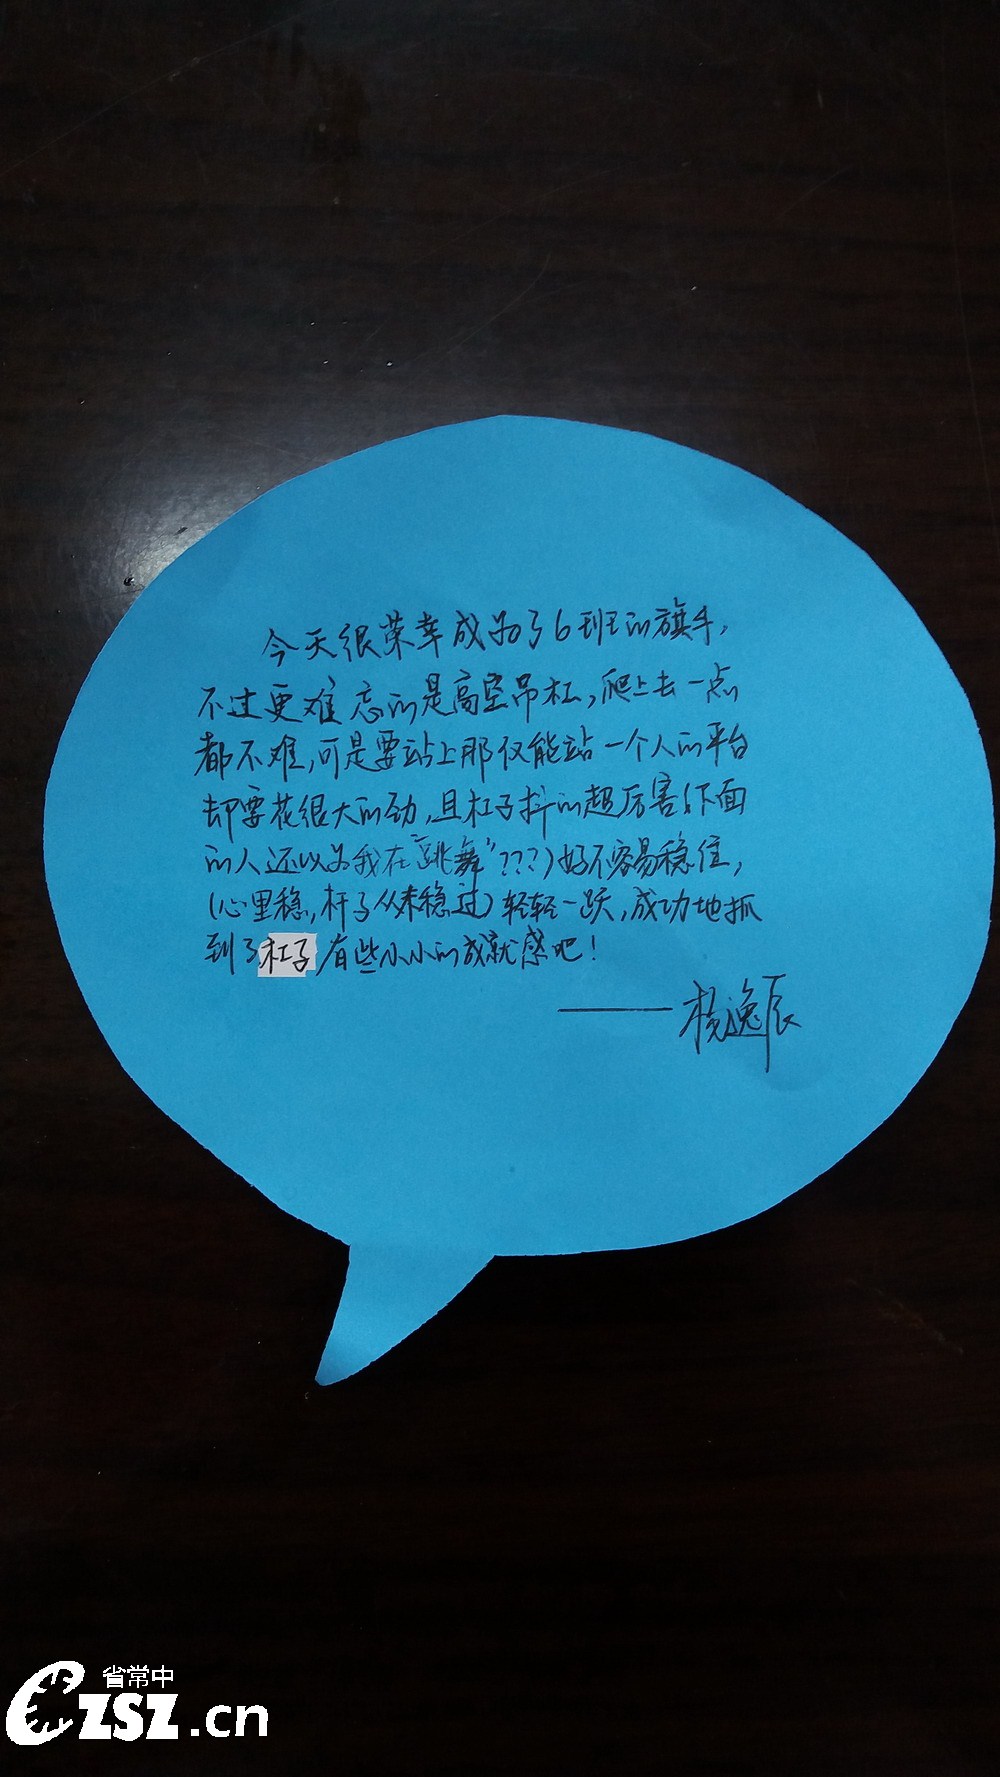 今天很荣幸成为了6班的旗手,
不过更难忘的是高空吊杠,爬上去一点
都不难,可是要站上那仅能站一个人的平台
却要花很大的劲,且杠子抖的超厉害(下面
的人还以为我在"跳舞"???)好不容易稳住,
(心里稳,杆子从未稳过)轻轻一跃,成功地抓
到了杠子,有些小小的成就感吧!
——杨逸辰
省常中
CZSZ.cn